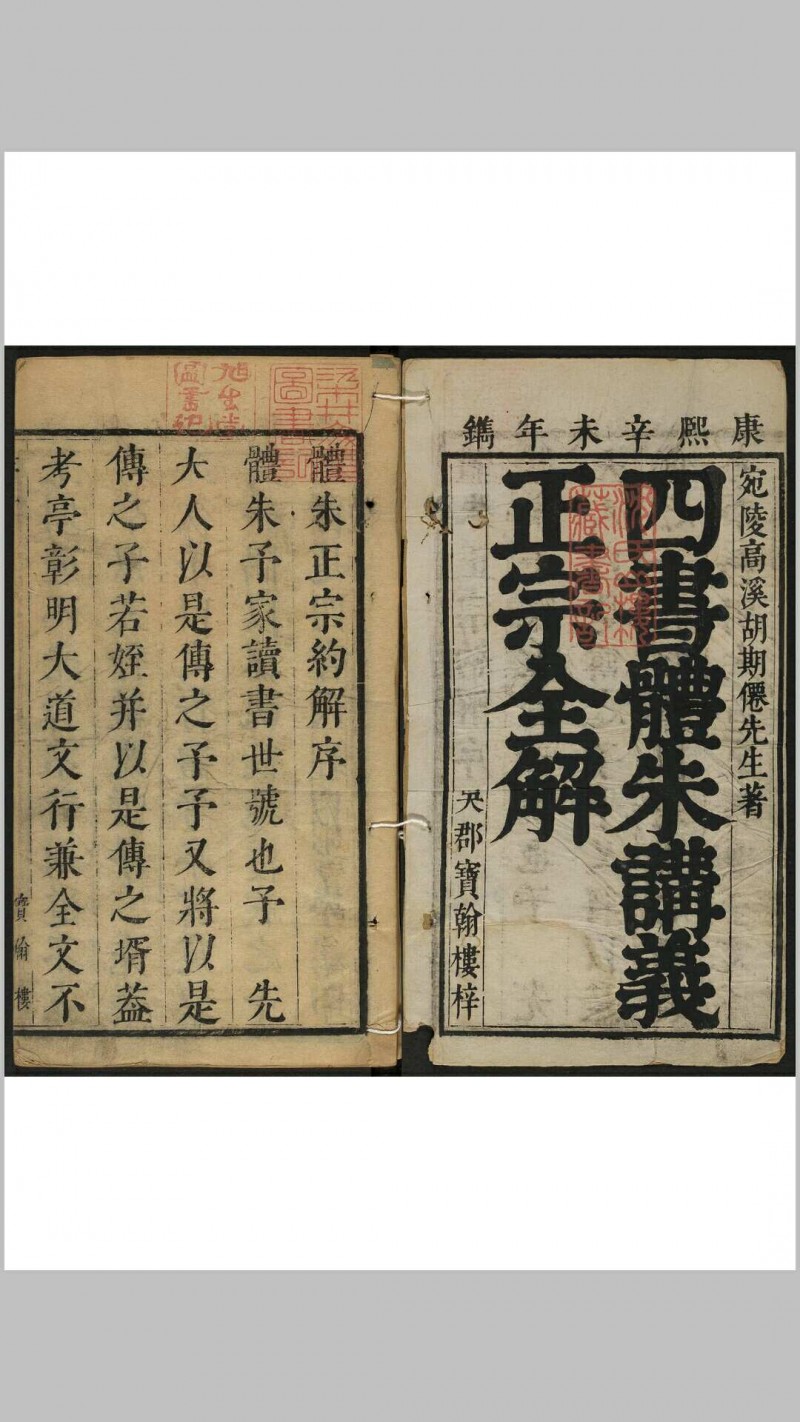 康熙辛未年鐫
宛陵高溪胡期僊先生著
四書體朱講義
正宗全解
吳郡寶翰樓梓
體朱正宗約解序
體朱予家讀書世號也予　先
大人以是傳之予予又將以是
傳之子若姪并以是傳之壻葢
考亭彰明大道文行兼全文不
寶翰樓
旭生堂
圖書記